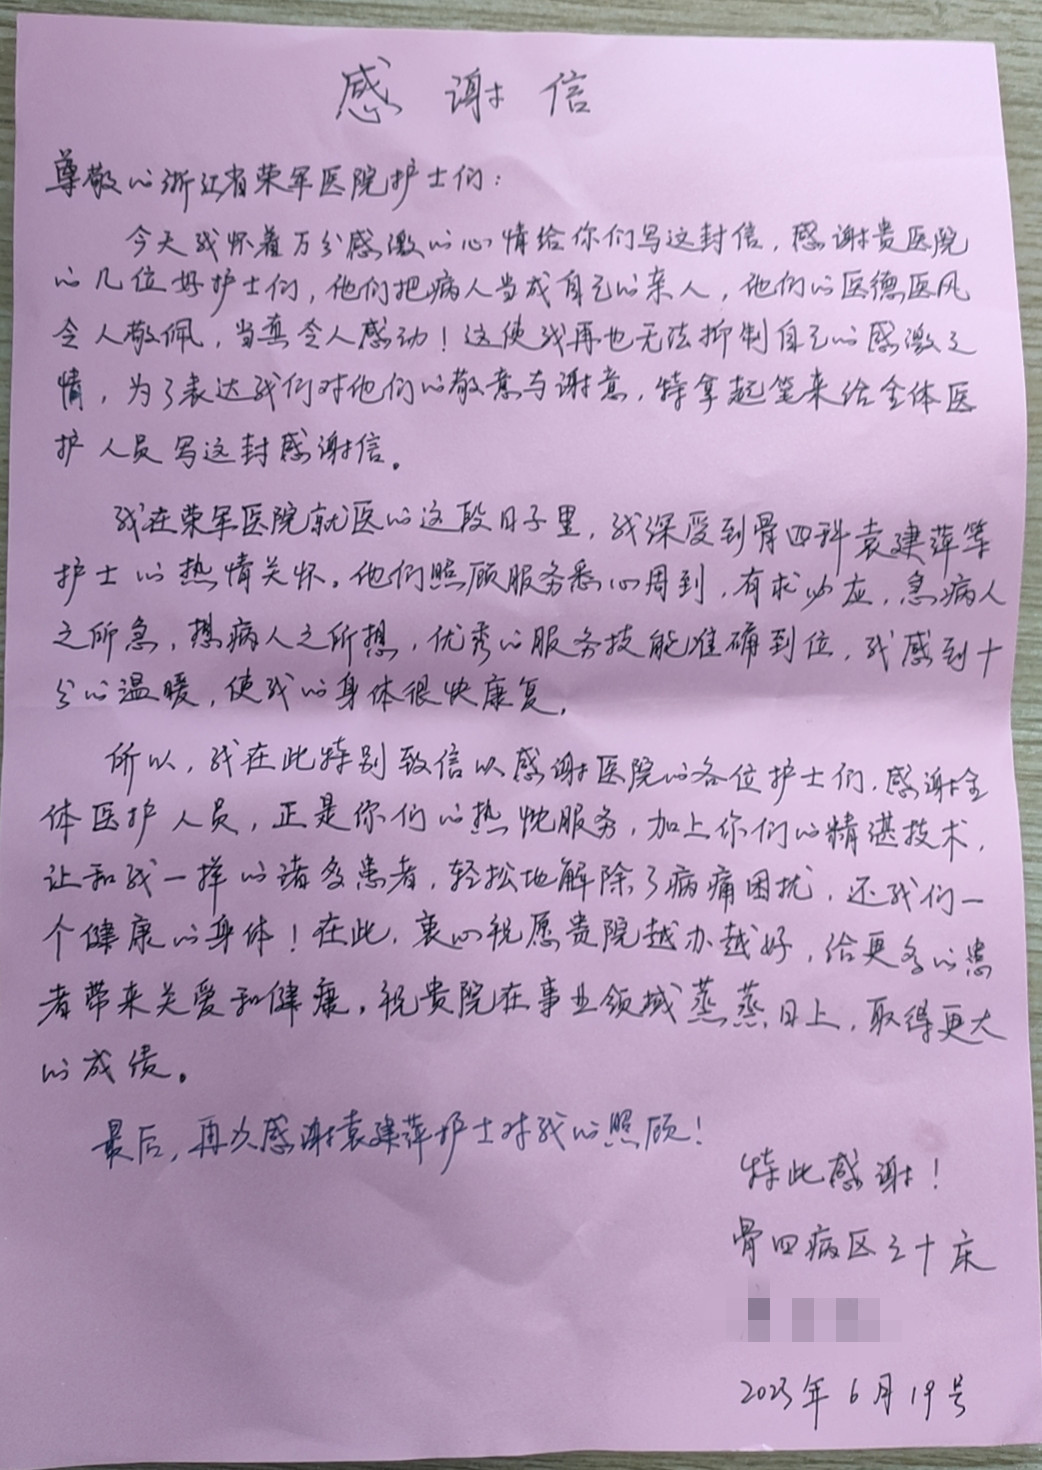 感谢信
尊敬的浙江省荣军医院护士们：
今天我怀着万分感激的心情给你们写这封信，感谢贵医院
的几位好护士们，他们把病人当成自己的亲人，他们的医德医风
令人敬佩，当真令人感动！这使我再也无法抑制自己的感激之
情，为了表达我们对他们的敬意与谢意，特拿起笔来给全体医
护人员写这封感谢信。
我在荣军医院就医的这段日子里，我深受到骨四科袁建萍等
护士的热情关怀。他们照顾服务悉心周到，有求必应，急病人
之所急，想病人之所想，优秀的服务技能准确到位，我感到十
分的温暖，使我的身体很快康复。
所以，我在此特别致信以感谢医院的各位护士们，感谢全
体医护人员，正是你们的热忱服务，加上你们的精湛技术，
让和我一样的诸多患者，轻松地解除了病痛困扰，还我们一
个健康的身体！在此，衷心祝愿贵院越办越好，给更多的患
者带来关爱和健康。祝贵院在事业领域蒸蒸日上，取得更大
的成绩。
最后，再次感谢袁建萍护士对我的照顾！
特此感谢！
骨四病区之十床
2023年6月19号